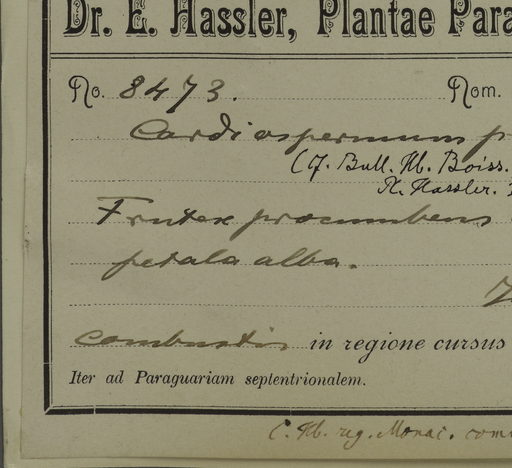 Dr. E. Hassler, Plantae Para
No. 8473. Nom.
Cardiospermum p
(f. Bull. Hb. Boiss.
Hassler.
Frutex procumbens
petala alba.
combustis in regione cursus
Iter ad Paraguariam septentrionalem.
C. Hb. reg. Monac. com